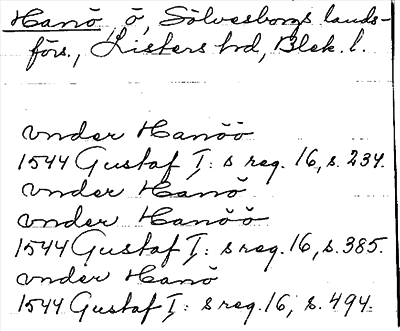 Hanö, ö, Sölvesborgs lands-
förs., Listers hd, Blek. l.
vnder Hanöö
1544 Gustaf I: s reg. 16, s. 234.
vnder Hanö
vnder Hanöö
1544 Gustaf I: s reg. 16, s. 385.
vnder Hanö
1544 Gustaf I: s reg. 16, s. 494.